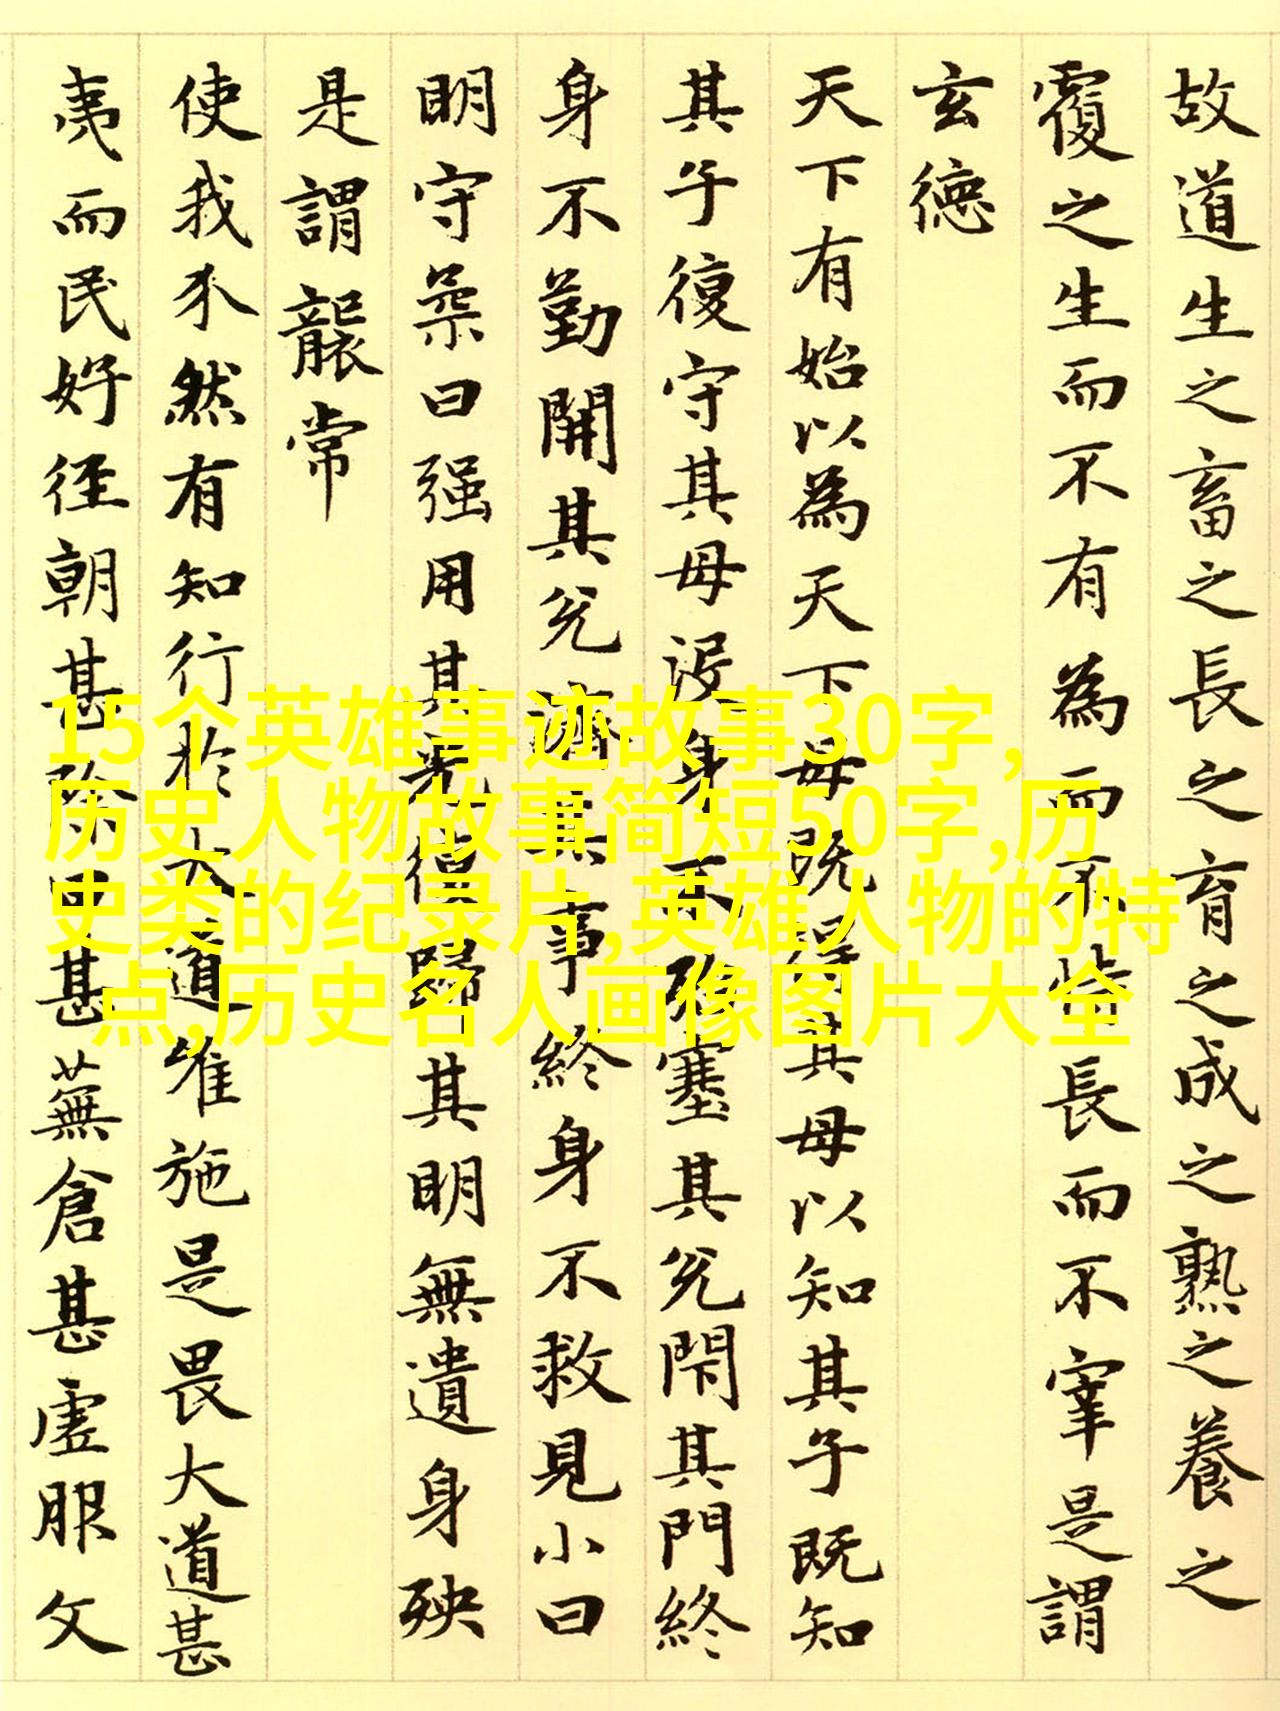 故道生之畜之長之育之成之熟之養之
覆之生而不有為而不恃長而不宰是謂
玄德
天下有始以為天下母既得其母以知其子既知
其子復守其母没身不殆塞其兌閇其門終
身不勤開其兌濟其事終身不救見小曰
明守柔曰强用其光復歸其明無遺身殃
是謂襲常
使我介然有知行於大道唯施是畏大道甚
夷而民好径朝甚除田甚蕪倉甚虚服文
15个英雄事迹故事30字,
历史人物故事简短50字,历
史类的纪录片,英雄人物的特
点,历史名人画像图片大全